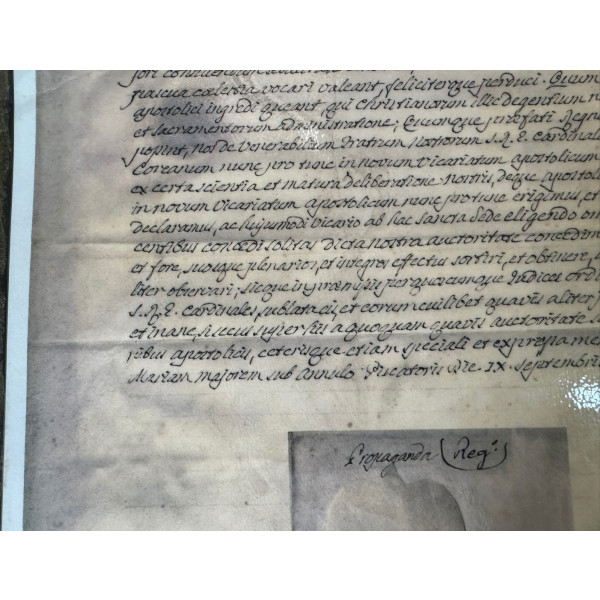 pascua coelestia vocari valeant, feliciterque perduci. Quum
apostolici ingredi queant, qui Christianorum illic degentium
et Sacramentorum administratione; Quumque praefati Regni
possint, nos de Venerabilium Fratrum Nostrorum S.R.E. Cardinalium
Coreanum nunc pro tunc in novum Vicariatum apostolicum
ex certa scientia et matura deliberatione nostris, deque apostoli
in novum Vicariatum apostolicum nunc pro tunc erigimus, et
declaramus, ac hujusmodi Vicario ab hac Sancta Sede eligendo om
centibus concedi solitas dicta nostra auctoritate concedim
et fore, suosque plenarios, et integros effectus sortiri, et obtinere,
liter observari; sicque in praemissis per quoscumque Judices ordi
S.R.E. Cardinales sublata eis, et eorum cuilibet quavis aliter
et inane, si secus super his a quoquam quavis auctoritate
ribus apostolicis, ceterisque etiam speciali et expressa me
Mariam majorem sub annulo Piscatoris Die IX. Septembris
Propaganda (Reg.)